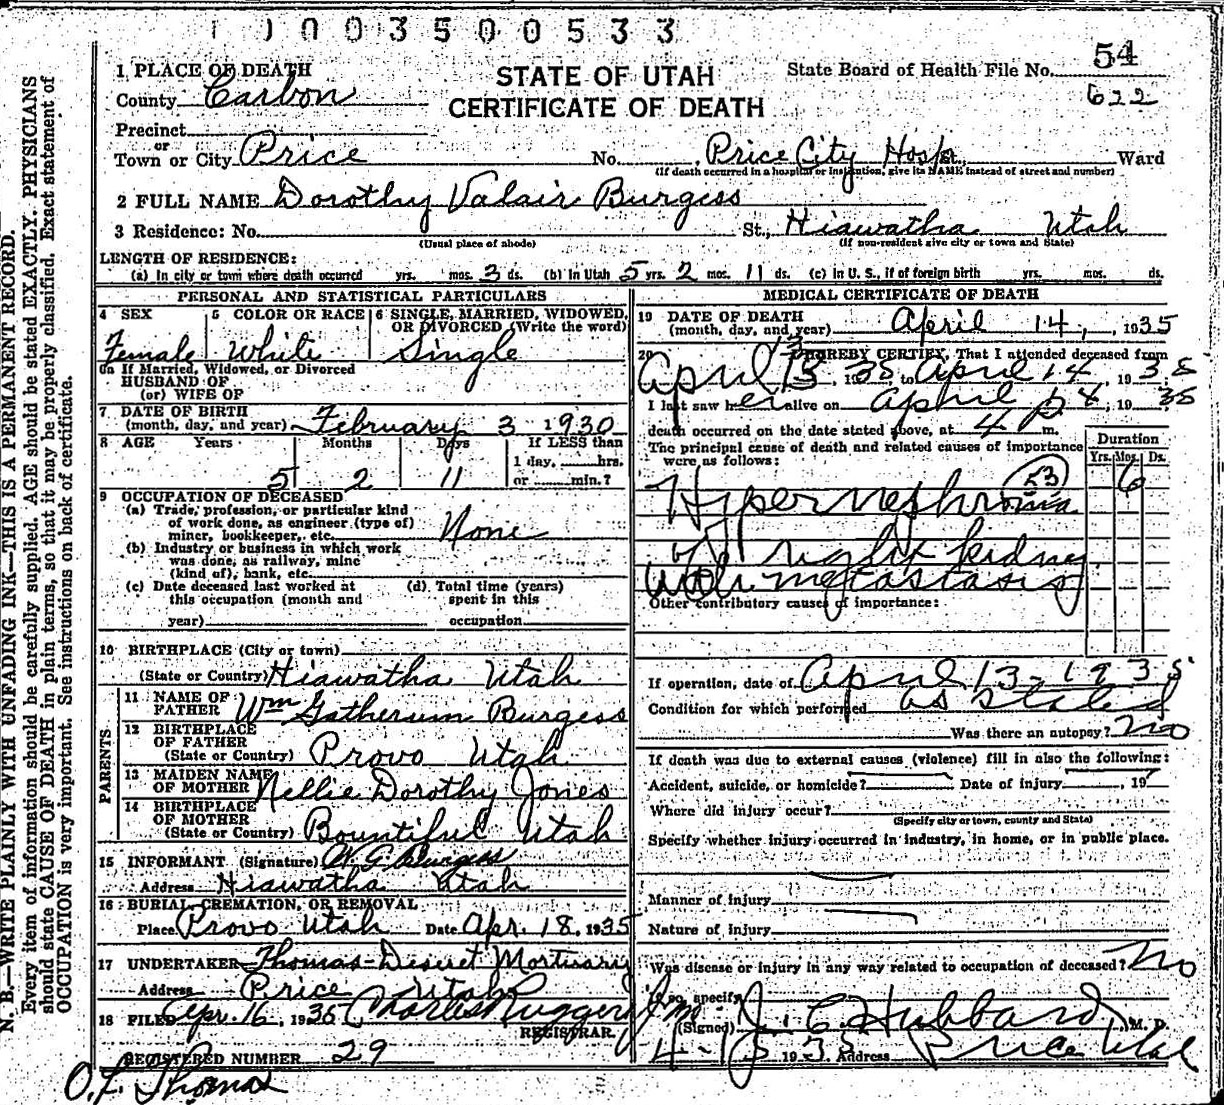 1 0 0 3 5 0 0 5 3 3
54
1 PLACE OF DEATH
STATE OF UTAH
State Board of Health File No.
County Carbon
CERTIFICATE OF DEATH
622
Precinct
or
Town or City Price No. Price City Hosp St., Ward
(If death occurred in a hospital or institution, give its NAME instead of street and number)
2 FULL NAME Dorothy Valair Burgess
3 Residence: No. St., Hiawatha Utah
(Usual place of abode) (If non-resident give city or town and State)
LENGTH OF RESIDENCE:
(a) In city or town where death occurred yrs. mos. 3 ds. (b) In Utah 5 yrs. 2 mos. 11 ds. (c) in U. S., if of foreign birth yrs. mos. ds.
PERSONAL AND STATISTICAL PARTICULARS
4 SEX 5 COLOR OR RACE 6 SINGLE, MARRIED, WIDOWED,
OR DIVORCED (Write the word)
Female White Single
6a If Married, Widowed, or Divorced
HUSBAND OF
(or) WIFE OF
7 DATE OF BIRTH
(month, day, and year) February 3 1930
8 AGE Years Months Days If LESS than
1 day, hrs.
5 2 11 or min.?
9 OCCUPATION OF DECEASED
(a) Trade, profession, or particular kind
of work done, as engineer (type of)
miner, bookkeeper, etc. None
(b) Industry or business in which work
was done, as railway, mine
(kind of), bank, etc.
(c) Date deceased last worked at (d) Total time (years)
this occupation (month and spent in this
year) occupation
10 BIRTHPLACE (City or town)
(State or Country) Hiawatha Utah
PARENTS
11 NAME OF
FATHER Wm Gatherum Burgess
12 BIRTHPLACE
OF FATHER
(State or Country) Provo Utah
13 MAIDEN NAME
OF MOTHER Nellie Dorothy Jones
14 BIRTHPLACE
OF MOTHER
(State or Country) Bountiful Utah
15 INFORMANT (Signature) W. G. Burgess
Address Hiawatha Utah
16 BURIAL, CREMATION, OR REMOVAL
Place Provo Utah Date Apr. 18, 1935
17 UNDERTAKER Thomas-Deseret Mortuary
Address Price Utah
18 FILED Apr. 16, 1935 Charles Ruggeri
REGISTRAR.
REGISTERED NUMBER 29
O. L. Thomas
MEDICAL CERTIFICATE OF DEATH
19 DATE OF DEATH
(month, day, and year) April 14, 1935
20 I HEREBY CERTIFY, That I attended deceased from
April 13 1935 to April 14, 1935
I last saw her alive on April 14, 1935
death occurred on the date stated above, at 4 p m.
The principal cause of death and related causes of importance
were as follows:
Duration
Yrs. Mos. Ds.
6
53
Hypernephroma
of right kidney
with metastasis
Other contributory causes of importance:
If operation, date of April 13-1935
Condition for which performed as stated
Was there an autopsy? No
If death was due to external causes (violence) fill in also the following:
Accident, suicide, or homicide? Date of injury , 19
Where did injury occur?
(Specify city or town, county and State)
Specify whether injury occurred in industry, in home, or in public place.
Manner of injury
Nature of injury
Was disease or injury in any way related to occupation of deceased? No
If so, specify
(Signed) J. C. Hubbard, M. D.
4-15 1935 Address Price Utah
N. B.—WRITE PLAINLY WITH UNFADING INK—THIS IS A PERMANENT RECORD.
Every item of information should be carefully supplied. AGE should be stated EXACTLY. PHYSICIANS
should state CAUSE OF DEATH in plain terms, so that it may be properly classified. Exact statement of
OCCUPATION is very important. See instructions on back of certificate.